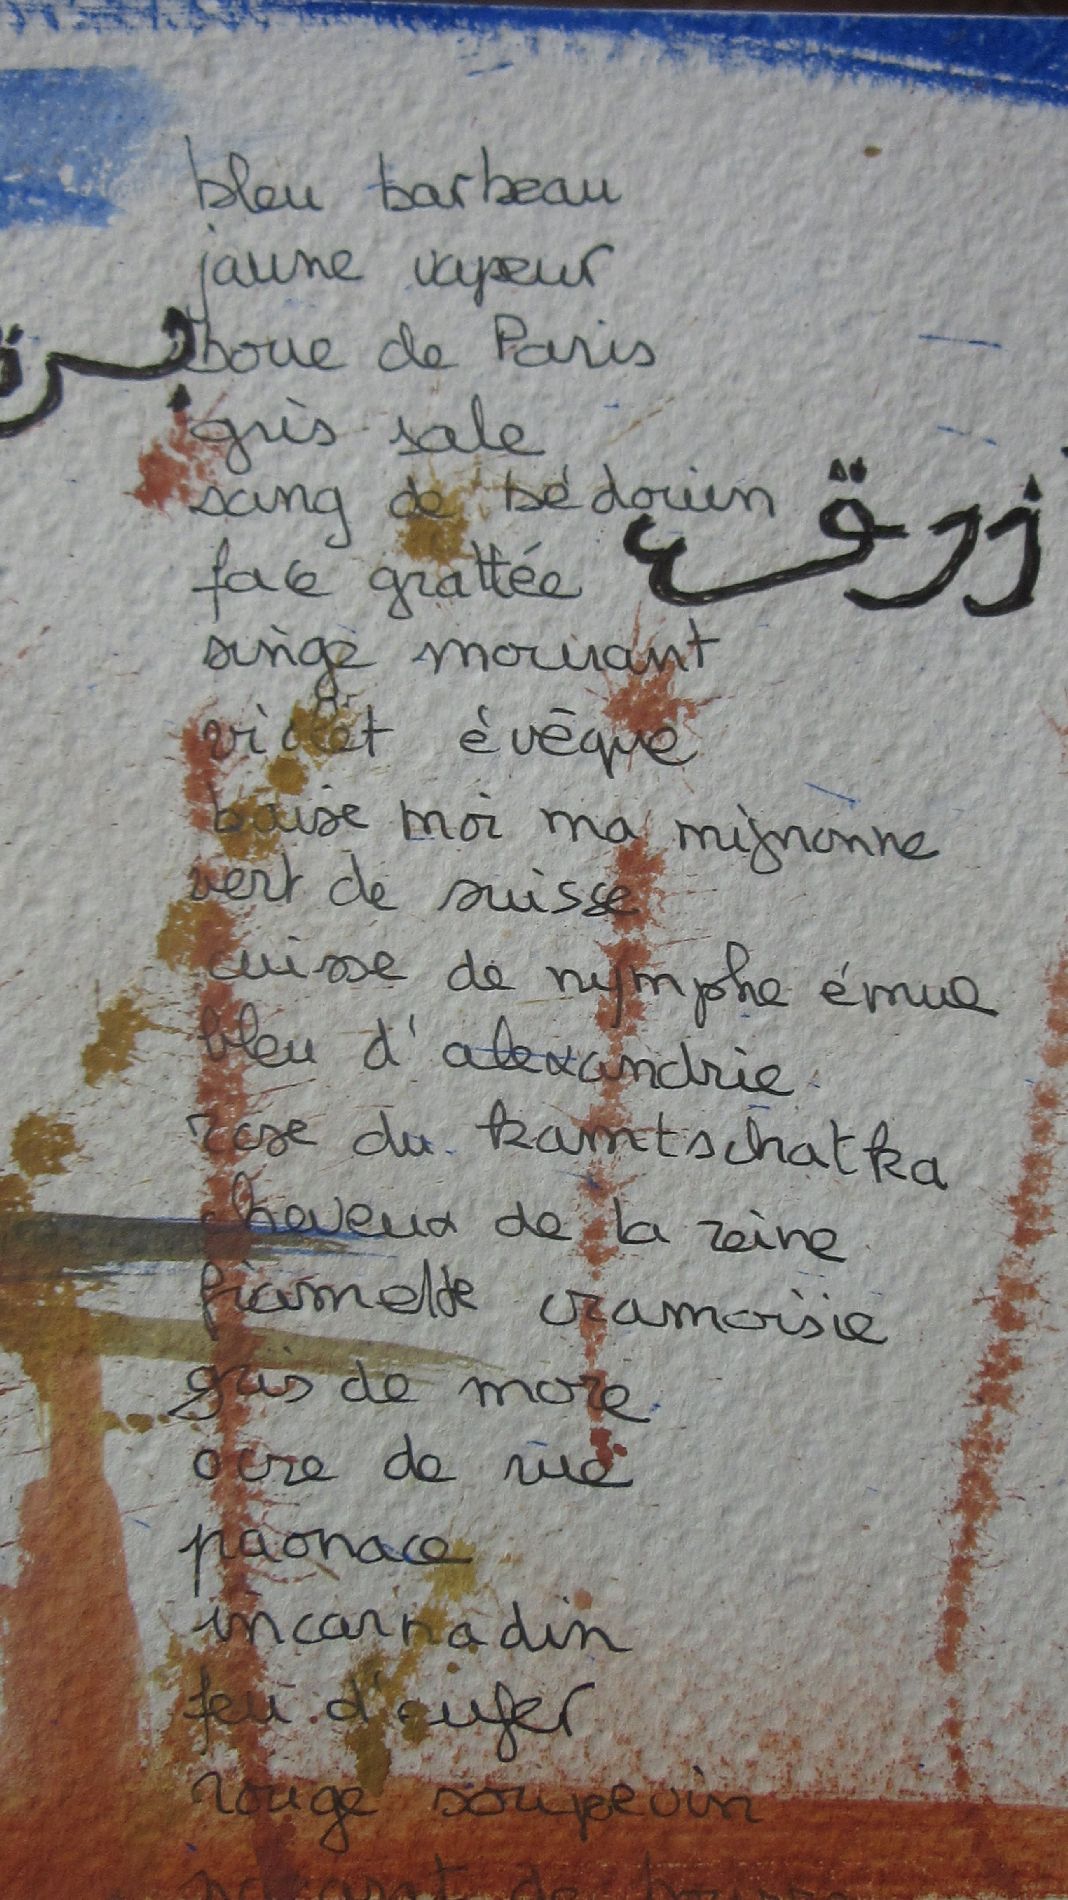 bleu barbeau
jaune vapeur
boue de Paris
gris sale
sang de bédouin
face grattée
singe mourant
violet évêque
baise moi ma mignonne
vert de suisse
cuisse de nymphe émue
bleu d'alexandrie
rose du kamtschatka
cheveux de la reine
fiamette cramoisie
gris de more
ocre de rue
paonace
incarnadin
feu d'enfer
rouge soupevin
de